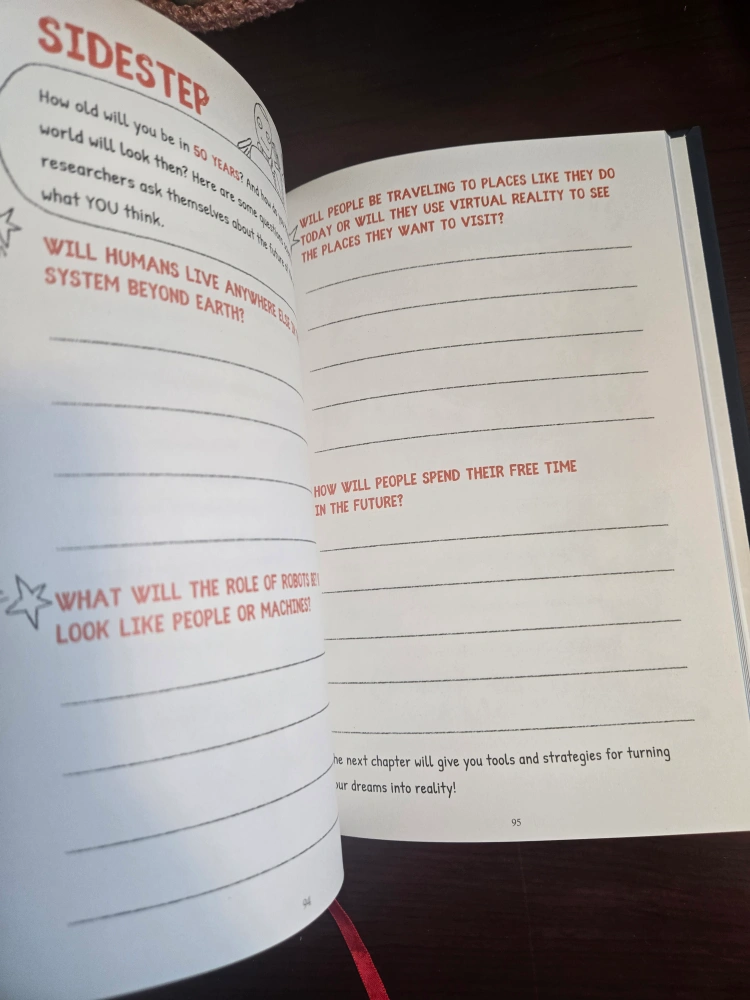 SIDESTEP
How old will you be in 50 YEARS? And how
world will look then? Here are some questions
researchers ask themselves about the future
what YOU think.
WILL HUMANS LIVE ANYWHERE ELSE
SYSTEM BEYOND EARTH?
WHAT WILL THE ROLE OF ROBOTS
LOOK LIKE PEOPLE OR MACHINES?
94
WILL PEOPLE BE TRAVELING TO PLACES LIKE THEY DO
TODAY OR WILL THEY USE VIRTUAL REALITY TO SEE
THE PLACES THEY WANT TO VISIT?
HOW WILL PEOPLE SPEND THEIR FREE TIME
IN THE FUTURE?
he next chapter will give you tools and strategies for turning
our dreams into reality!
95